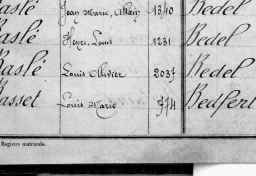 Baslé Jean Marie, Alban 1340 Bedel
Baslé Henri Louis 1231 Bedel
Baslé Louis Olivier 2037 Bedel
Basset Louis Marie 774 Bedfert
Registre matricule.